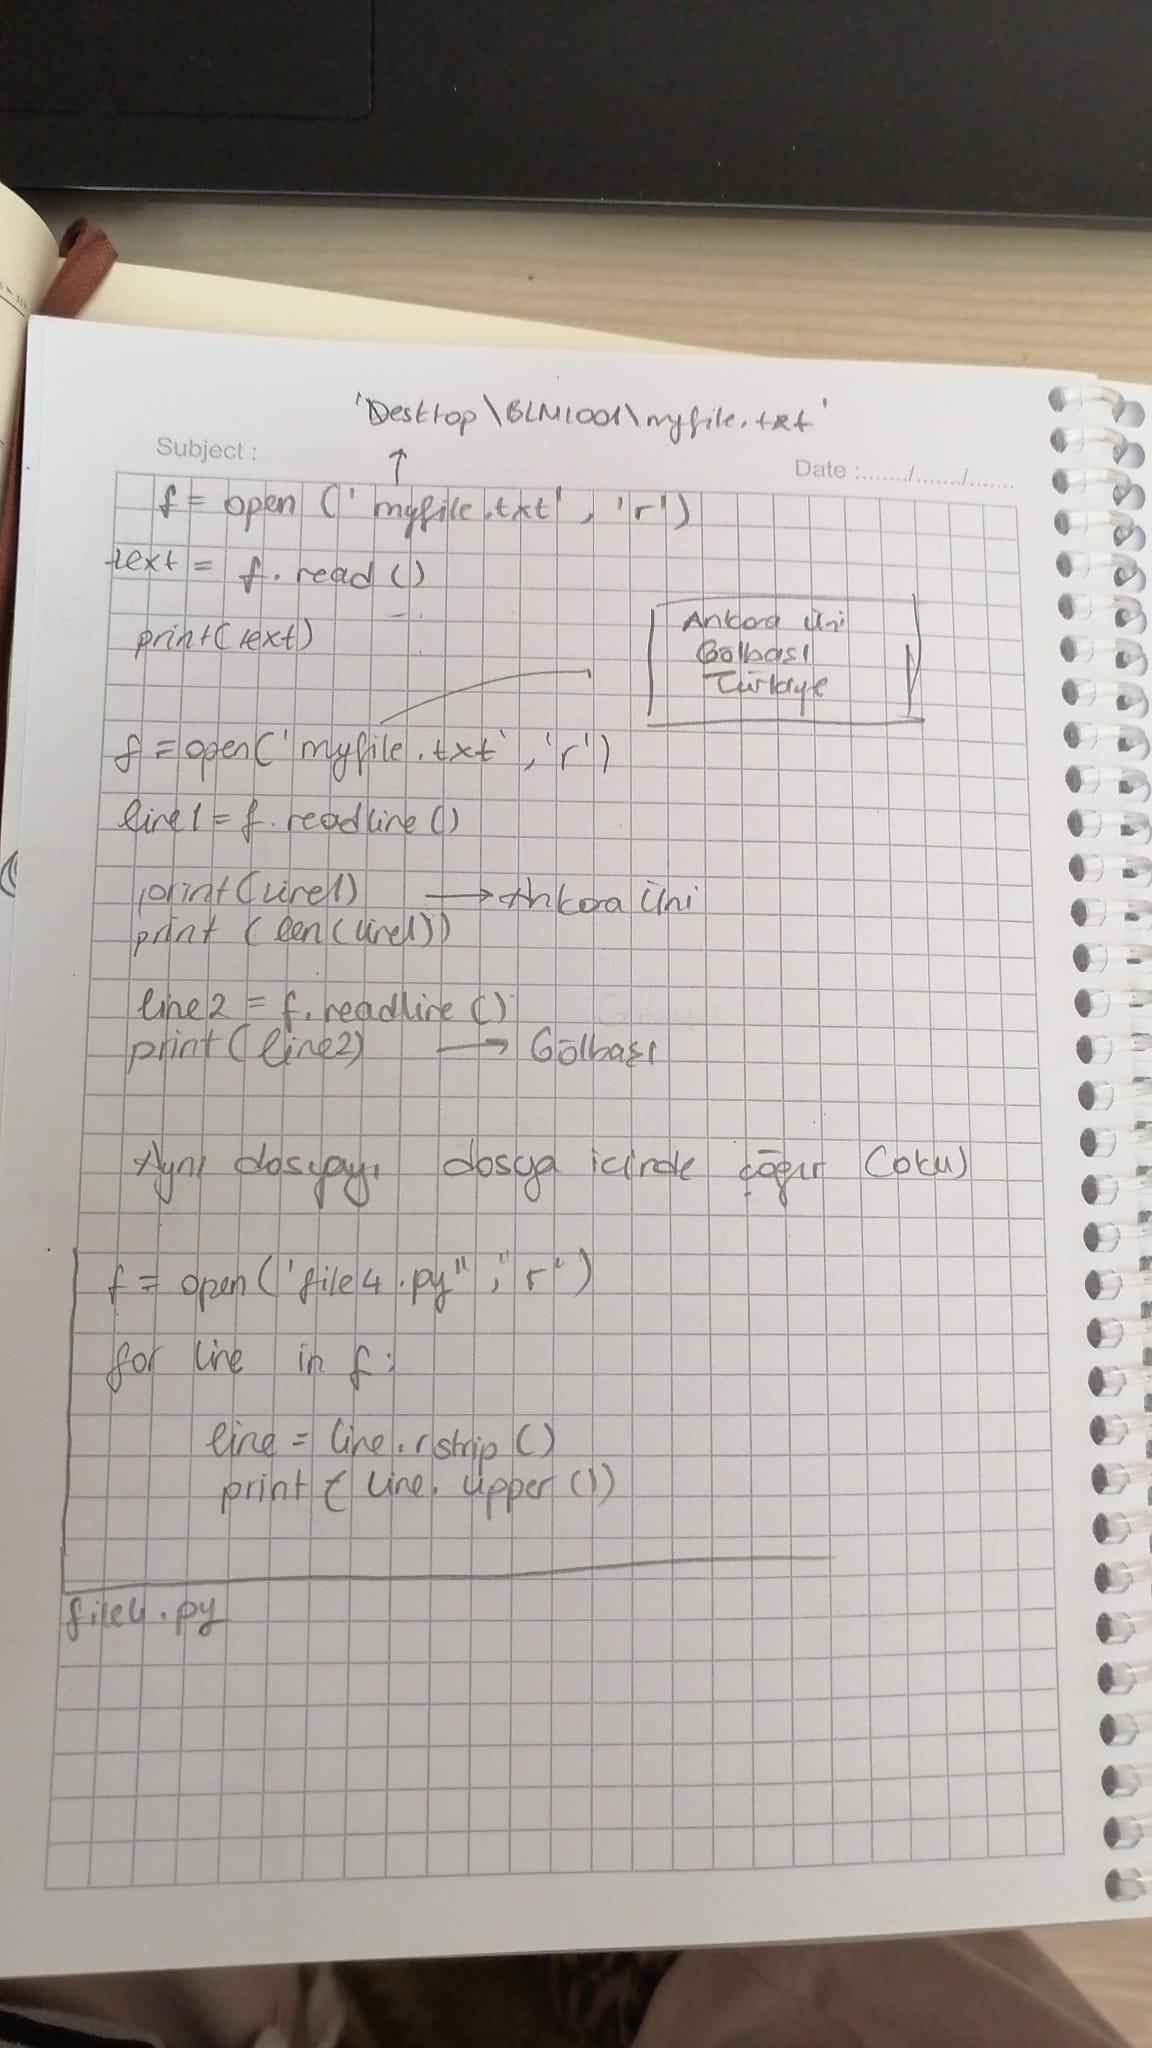 'Desktop\BLM1001\myfile.txt'
Subject :
Date :......../......../........
↑
f = open ('myfile.txt', 'r')
text = f.read()
print(text)
Ankara Üni
Gölbaşı
Türkiye
f = open('myfile.txt', 'r')
line1 = f.readline()
print(line1) → Ankara Üni
print (len(line1))
line2 = f.readline()
print(line2) → Gölbaşı
Aynı dosyayı dosya içinde çağır (oku)
f = open('file4.py", "r")
for line in f:
line = line.rstrip()
print(line.upper())
file4.py